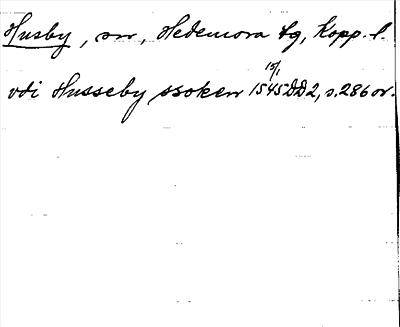 Husby, sn, Hedemora tg, Kopp. l.
vdi Husseby ssoken 15/1 1545 DD2, s. 286 or.